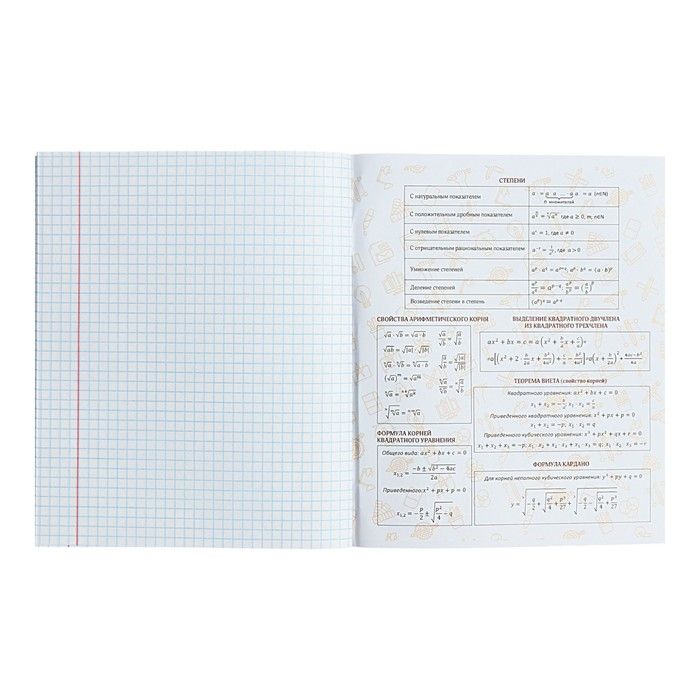 СТЕПЕНИ
С натуральным показателем a = a a ... a a = a (n∈N)
n множителей
С положительным дробным показателем где a ≥ 0, m, n∈N
С нулевым показателем a° = 1, где a ≠ 0
С отрицательным рациональным показателем где a > 0
Умножение степеней aᵖ · a^q = a^(p+q); aᵖ · bᵖ = (a · b)ᵖ
Деление степеней aᵖ/a^q = a^(p−q); aᵖ/bᵖ = (a/b)ᵖ
Возведение степени в степень
СВОЙСТВА АРИФМЕТИЧЕСКОГО КОРНЯ
√a · √b = √a · b
√ab = √|a| · √|b|
ФОРМУЛА КОРНЕЙ
КВАДРАТНОГО УРАВНЕНИЯ
Общего вида: ax² + bx + c = 0
x₁,₂ = (−b ± √(b² − 4ac))/2a
Приведенного: x² + px + p = 0
x₁,₂ = −p/2 ± √(p²/4 − q)
ВЫДЕЛЕНИЕ КВАДРАТНОГО ДВУЧЛЕНА
ИЗ КВАДРАТНОГО ТРЕХЧЛЕНА
ТЕОРЕМА ВИЕТА (свойство корней)
Квадратного уравнения: ax² + bx + c = 0
x₁ + x₂ = −b/a; x₁ · x₂ = c/a
Приведенного квадратного уравнения: x² + px + p = 0
x₁ + x₂ = −p; x₁ · x₂ = q
Приведенного кубического уравнения: x³ + px² + qx + r = 0
ФОРМУЛА КАРДАНО
Для корней неполного кубического уравнения: y³ + py + q = 0